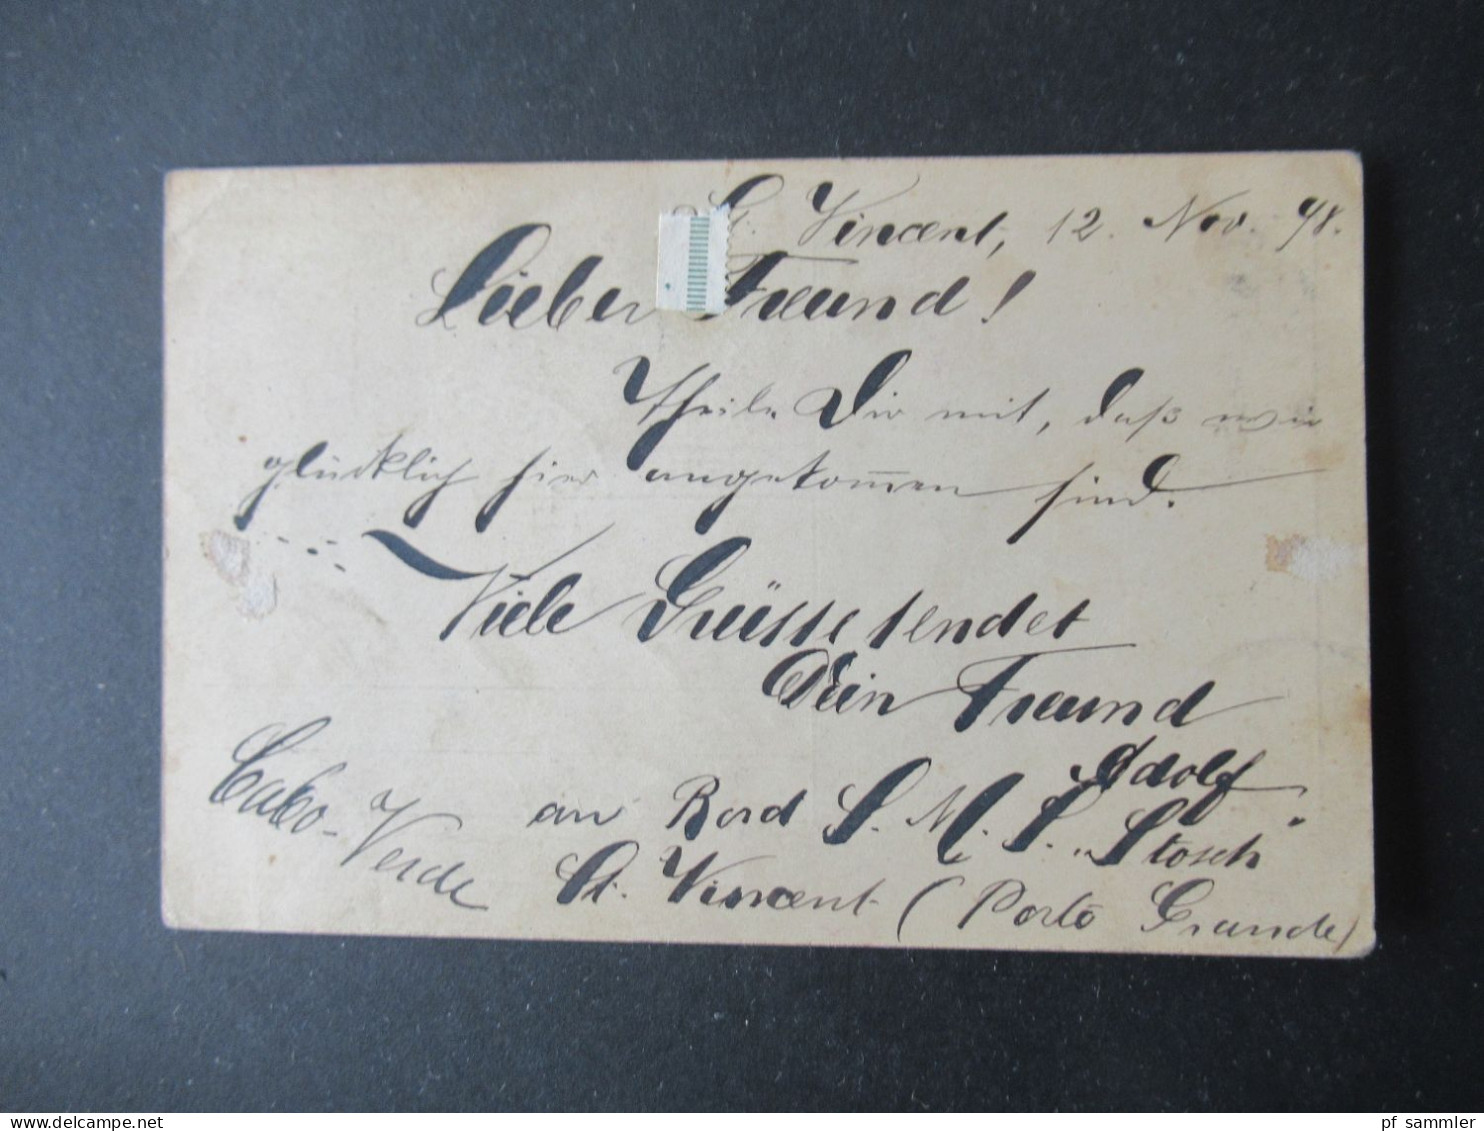 St. Vincent, 12. Nov. 98.
Lieber Freund!
Theile Dir mit, daß wir
glücklich hier angekommen sind.
Viele Grüsse sendet
Dein Freund
Adolf
an Bord S. M. S. „Stosch"
Cabo-
Verde
St. Vincent (Porto Grande)
pf sammler
www.delcampe.net